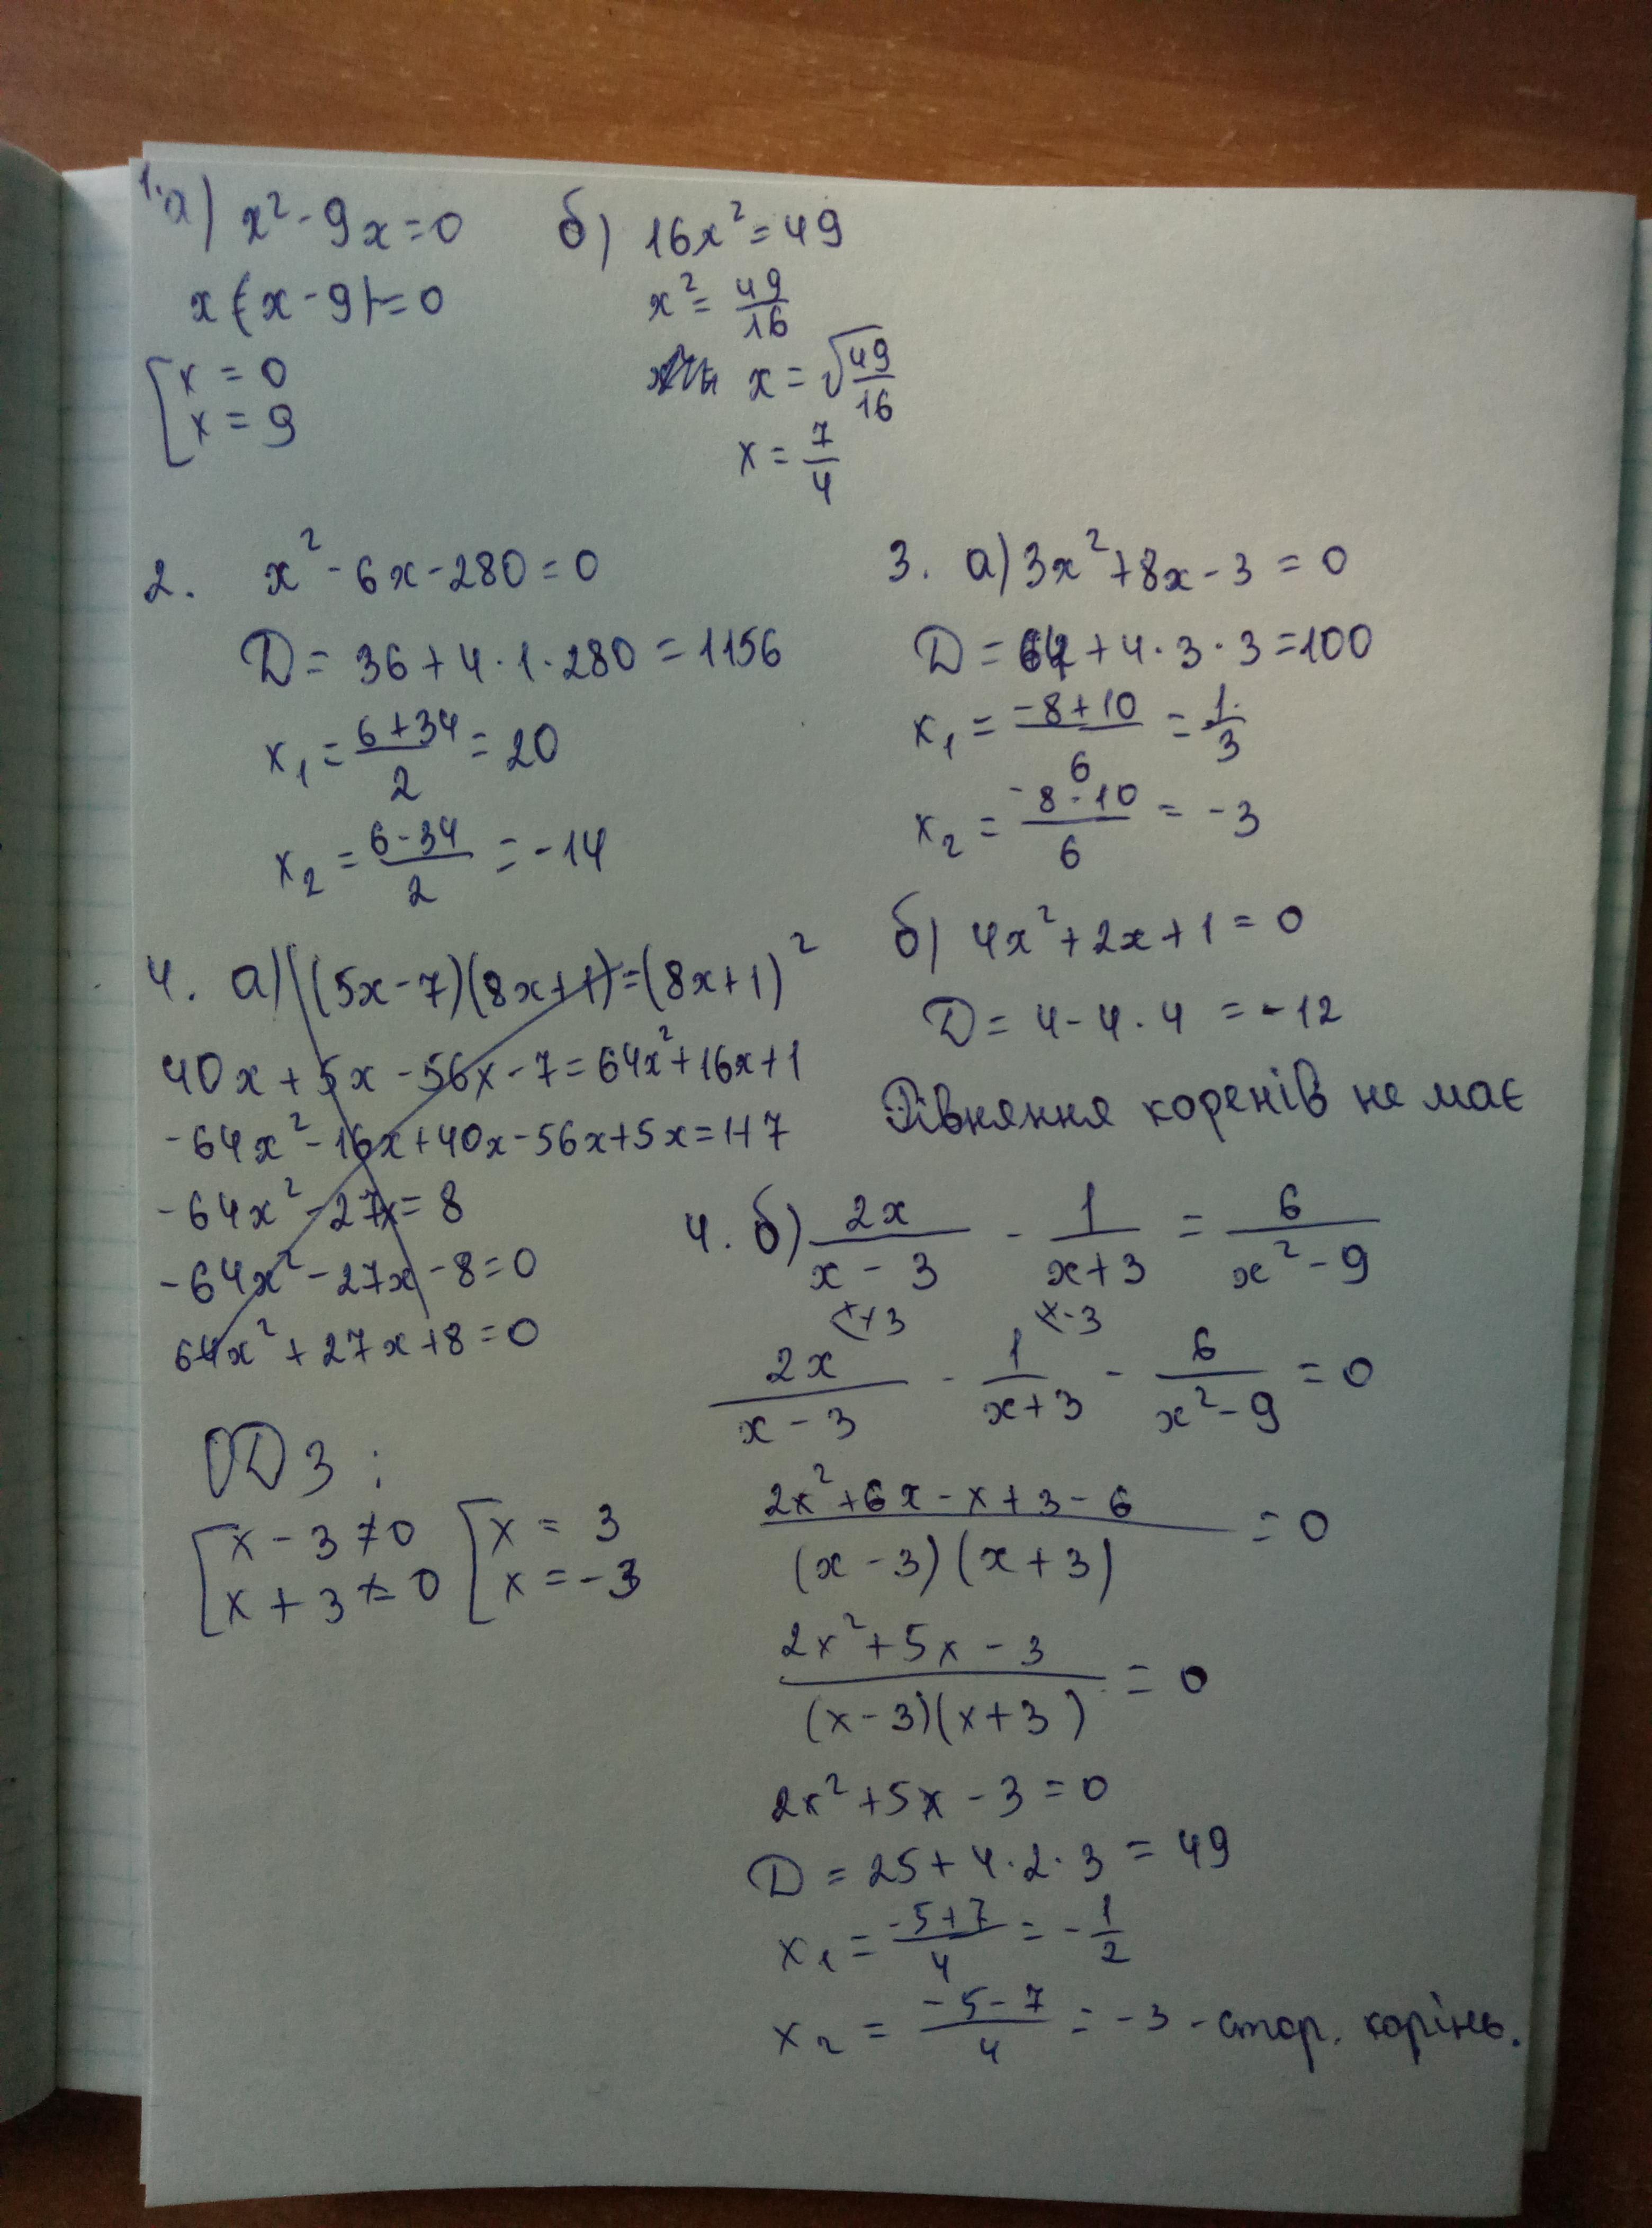 1. а) x² - 9x = 0
x(x - 9) = 0
[x = 0
x = 9
б) 16x² = 49
x² = 49/16
x = √49/16
x = 7/4
2. x² - 6x - 280 = 0
D = 36 + 4·1·280 = 1156
x₁ = (6+34)/2 = 20
x₂ = (6-34)/2 = -14
3. а) 3x² + 8x - 3 = 0
D = 64 + 4·3·3 = 100
x₁ = (-8+10)/6 = 1/3
x₂ = (-8-10)/6 = -3
б) 4x² + 2x + 1 = 0
D = 4 - 4·4 = -12
Рівняння коренів не має
4. а) (5x-7)(8x+1) = (8x+1)²
40x + 5x - 56x - 7 = 64x² + 16x + 1
-64x² - 16x + 40x - 56x + 5x = 1+7
-64x² - 27x = 8
-64x² - 27x - 8 = 0
64x² + 27x + 8 = 0
ОДЗ:
[x - 3 ≠ 0 [x = 3
x + 3 ≠ 0 x = -3
4. б) 2x/(x-3) - 1/(x+3) = 6/(x²-9)
x+3 x-3
2x/(x-3) - 1/(x+3) - 6/(x²-9) = 0
(2x²+6x-x+3-6)/((x-3)(x+3)) = 0
(2x²+5x-3)/((x-3)(x+3)) = 0
2x² + 5x - 3 = 0
D = 25 + 4·2·3 = 49
x₁ = (-5+7)/4 = -1/2
x₂ = (-5-7)/4 = -3 - стор. корінь.